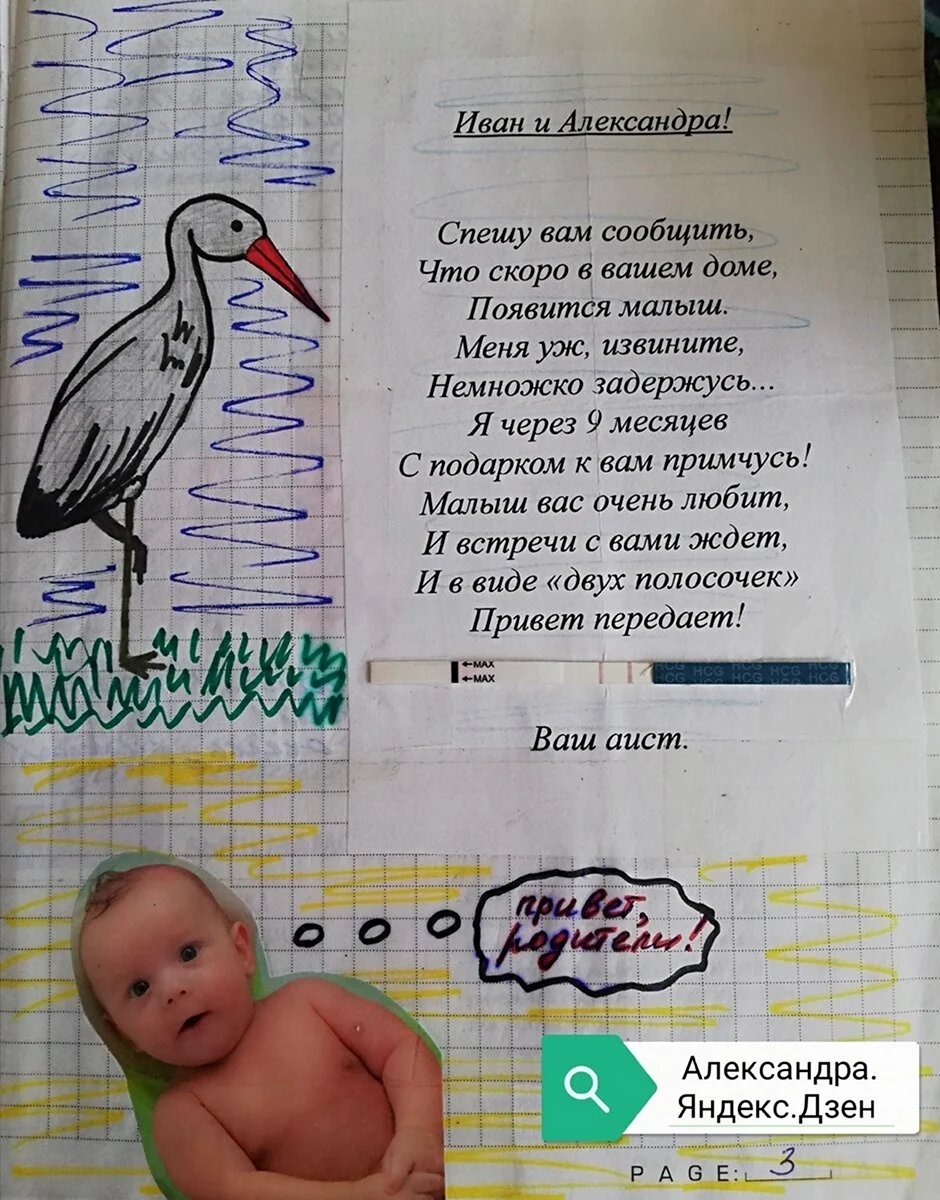 Иван и Александра!
Спешу вам сообщить,
Что скоро в вашем доме,
Появится малыш.
Меня уж, извините,
Немножко задержусь...
Я через 9 месяцев
С подарком к вам примчусь!
Малыш вас очень любит,
И встречи с вами ждет,
И в виде «двух полосочек»
Привет передает!
←MAX
←MAX
HCG HCG HCG HCG HCG
HCG HCG HCG HCG
Ваш аист.
привет,
родители!
Александра.
Яндекс.Дзен
PAGE: 3